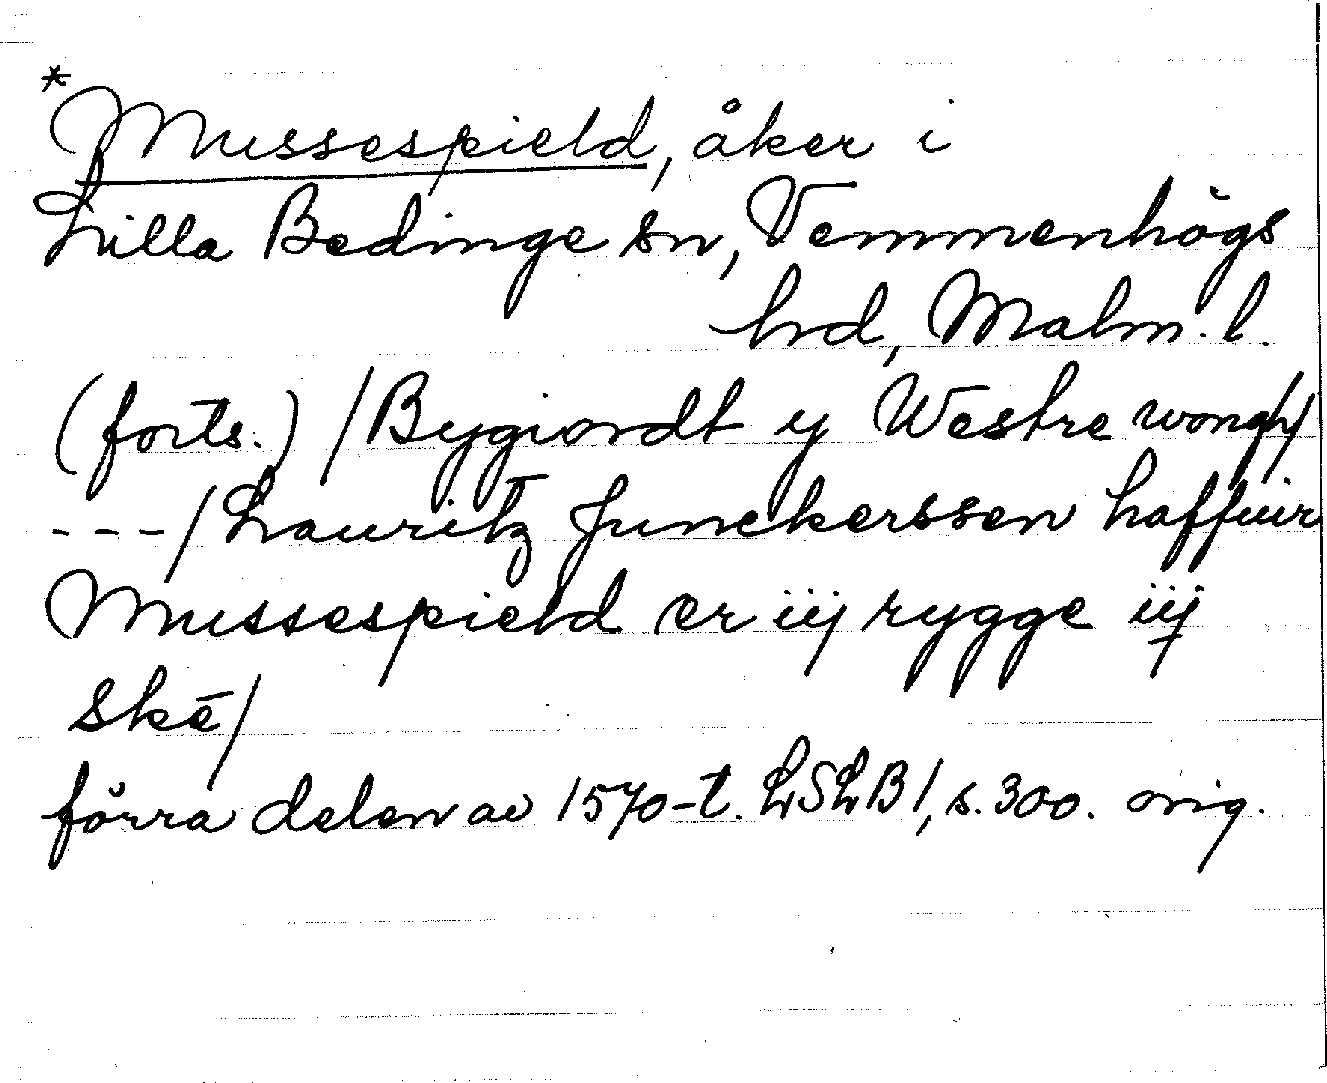 *Mussespield, åker i
Lilla Bedinge sn, Vemmenhögs
hrd, Malm. l.
(forts.) /Bygiordt y Westre wongh/
---/ Lauritz Junckerssen haffuir
Mussespield er iij rygge iij
skē/
förra delen av 1570-t. LSLB 1, s. 300. orig.